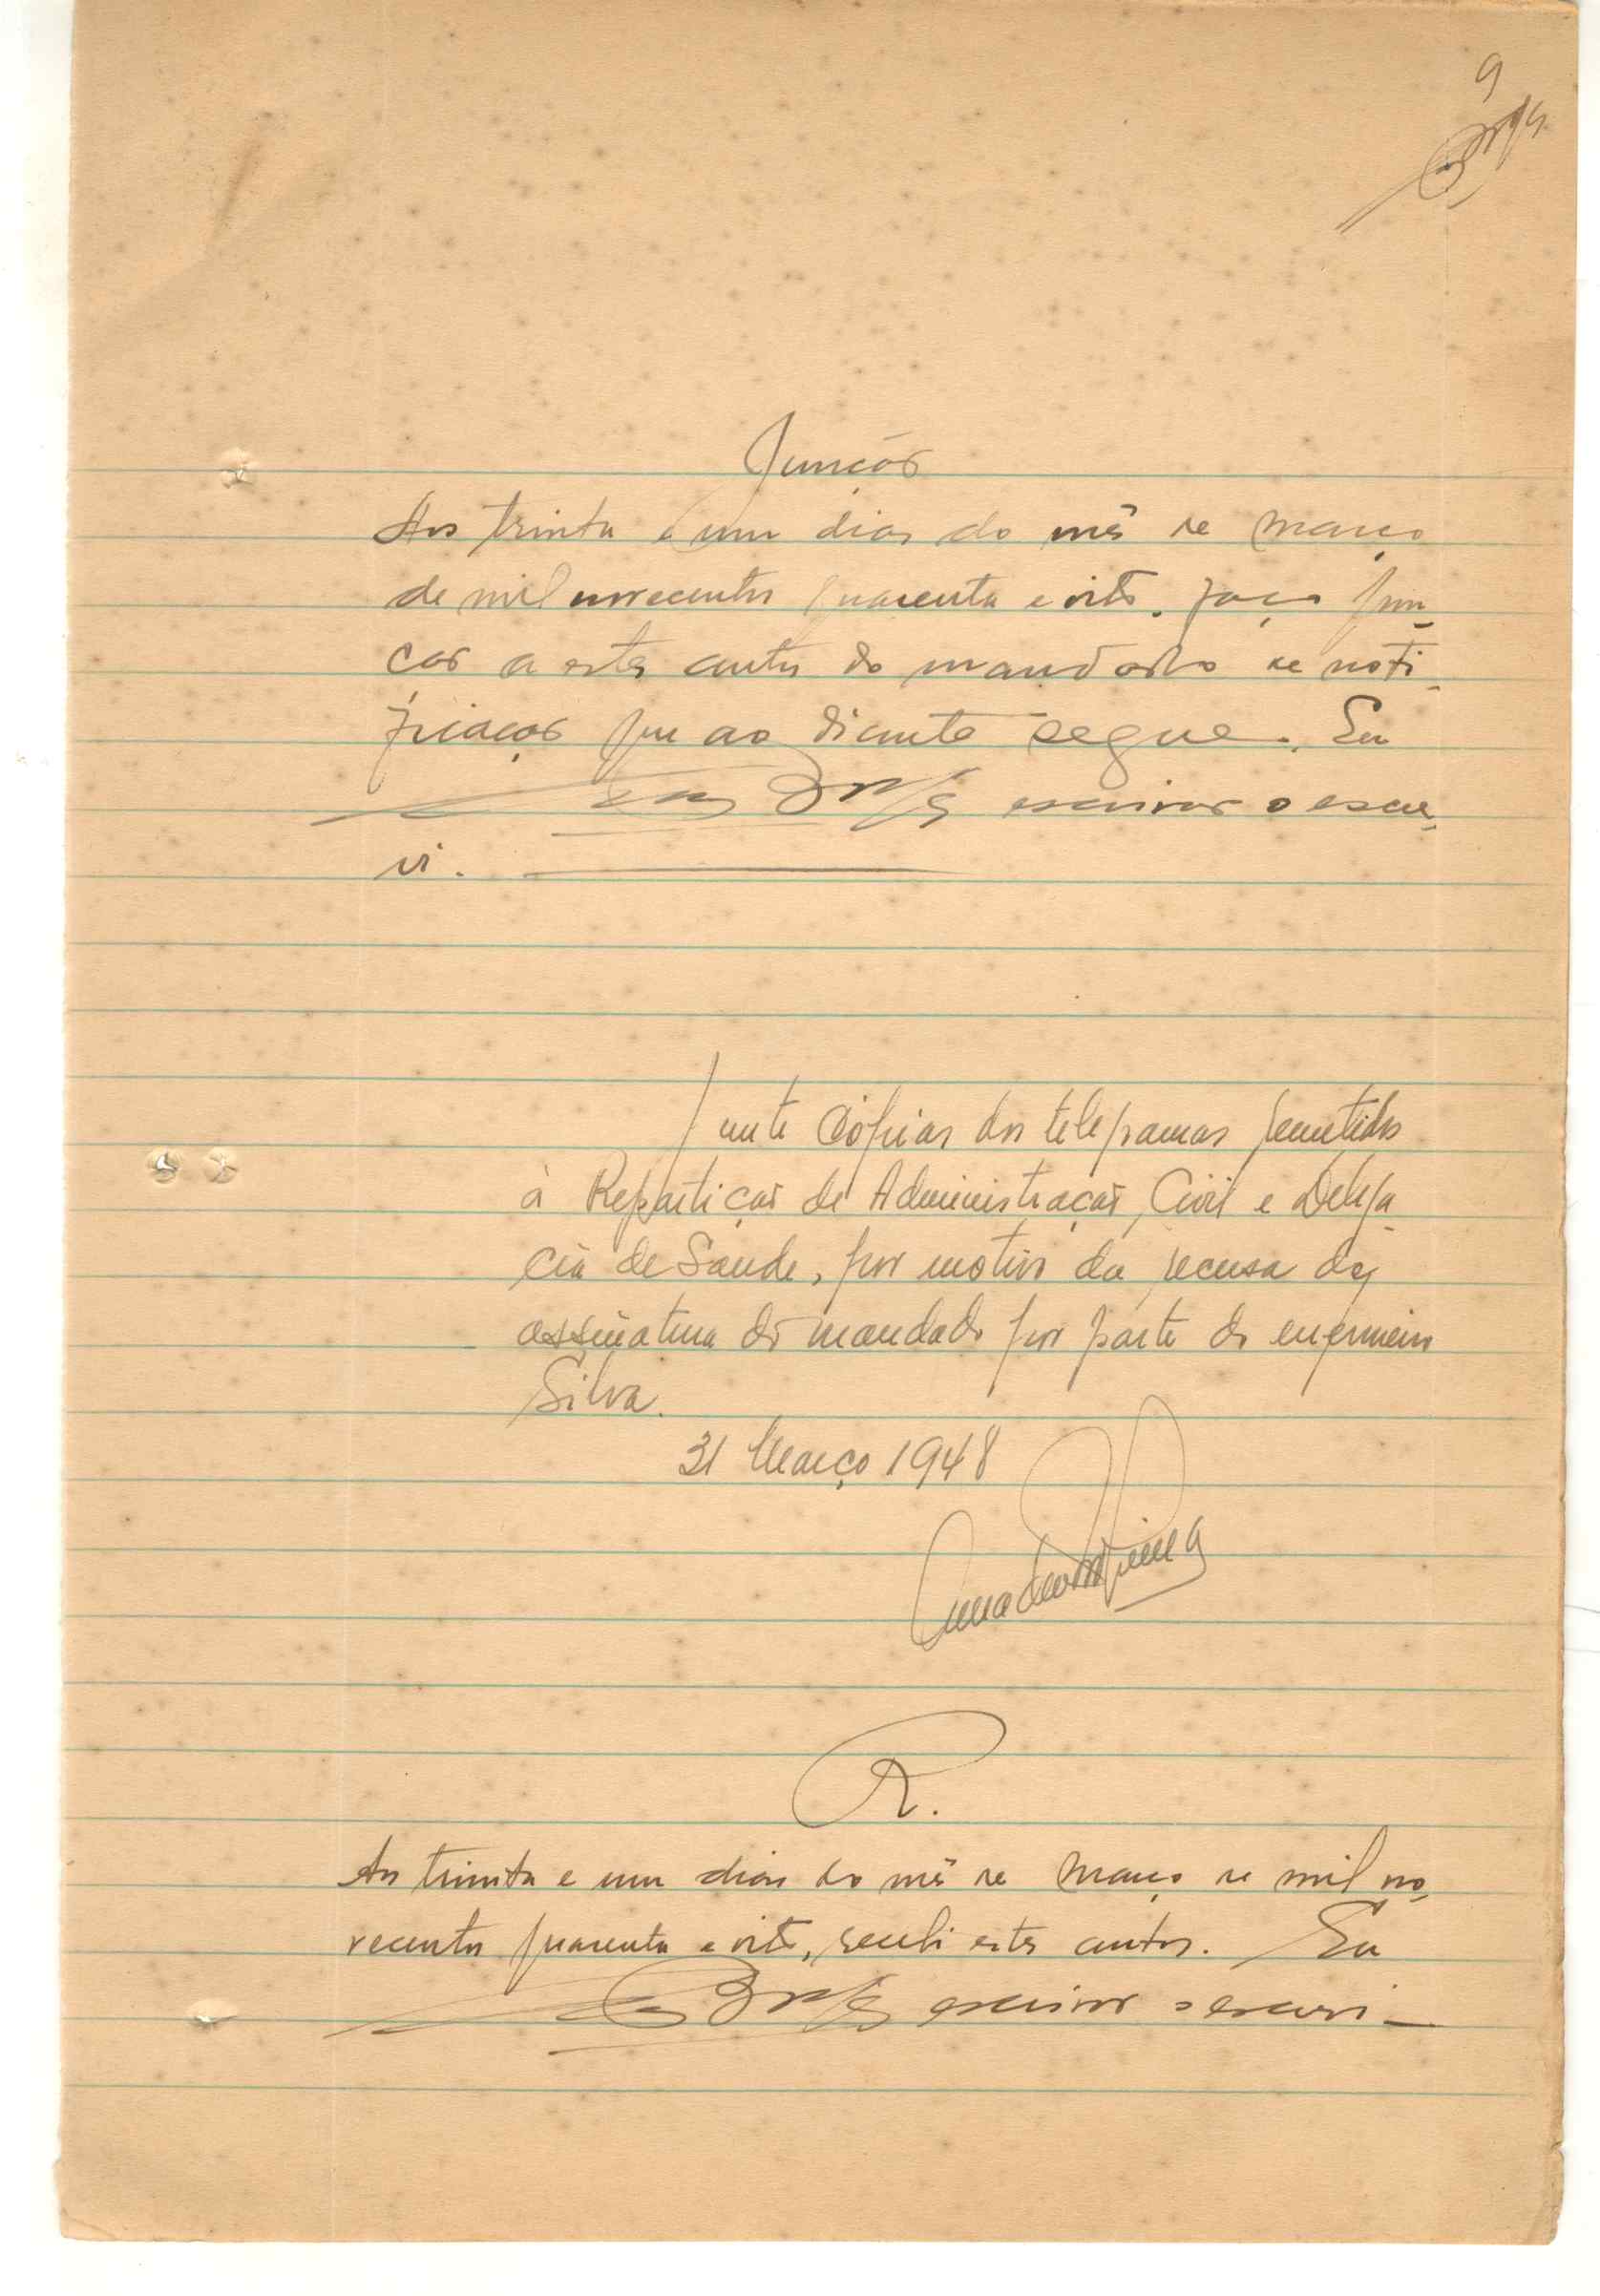 9
Junção
Aos trinta e um dias do mês de Março
de mil novecentos quarenta e oito. faço jun_
ção a estes autos do mandado de noti_
ficação que ao diante segue. Eu
escrivão o escre_
vi.
Junte cópias dos telegramas remetidos
à Repartição de Administração Civil e Delega_
cia de Saude, por motivo da recusa da
assinatura do mandado por parte do enfermeiro
Silva.
31 Março 1948
R.
Aos trinta e um dias do mês de Março de mil no_
vecentos quarenta e oito, recebi estes autos. Eu
escrivão o escrevi_